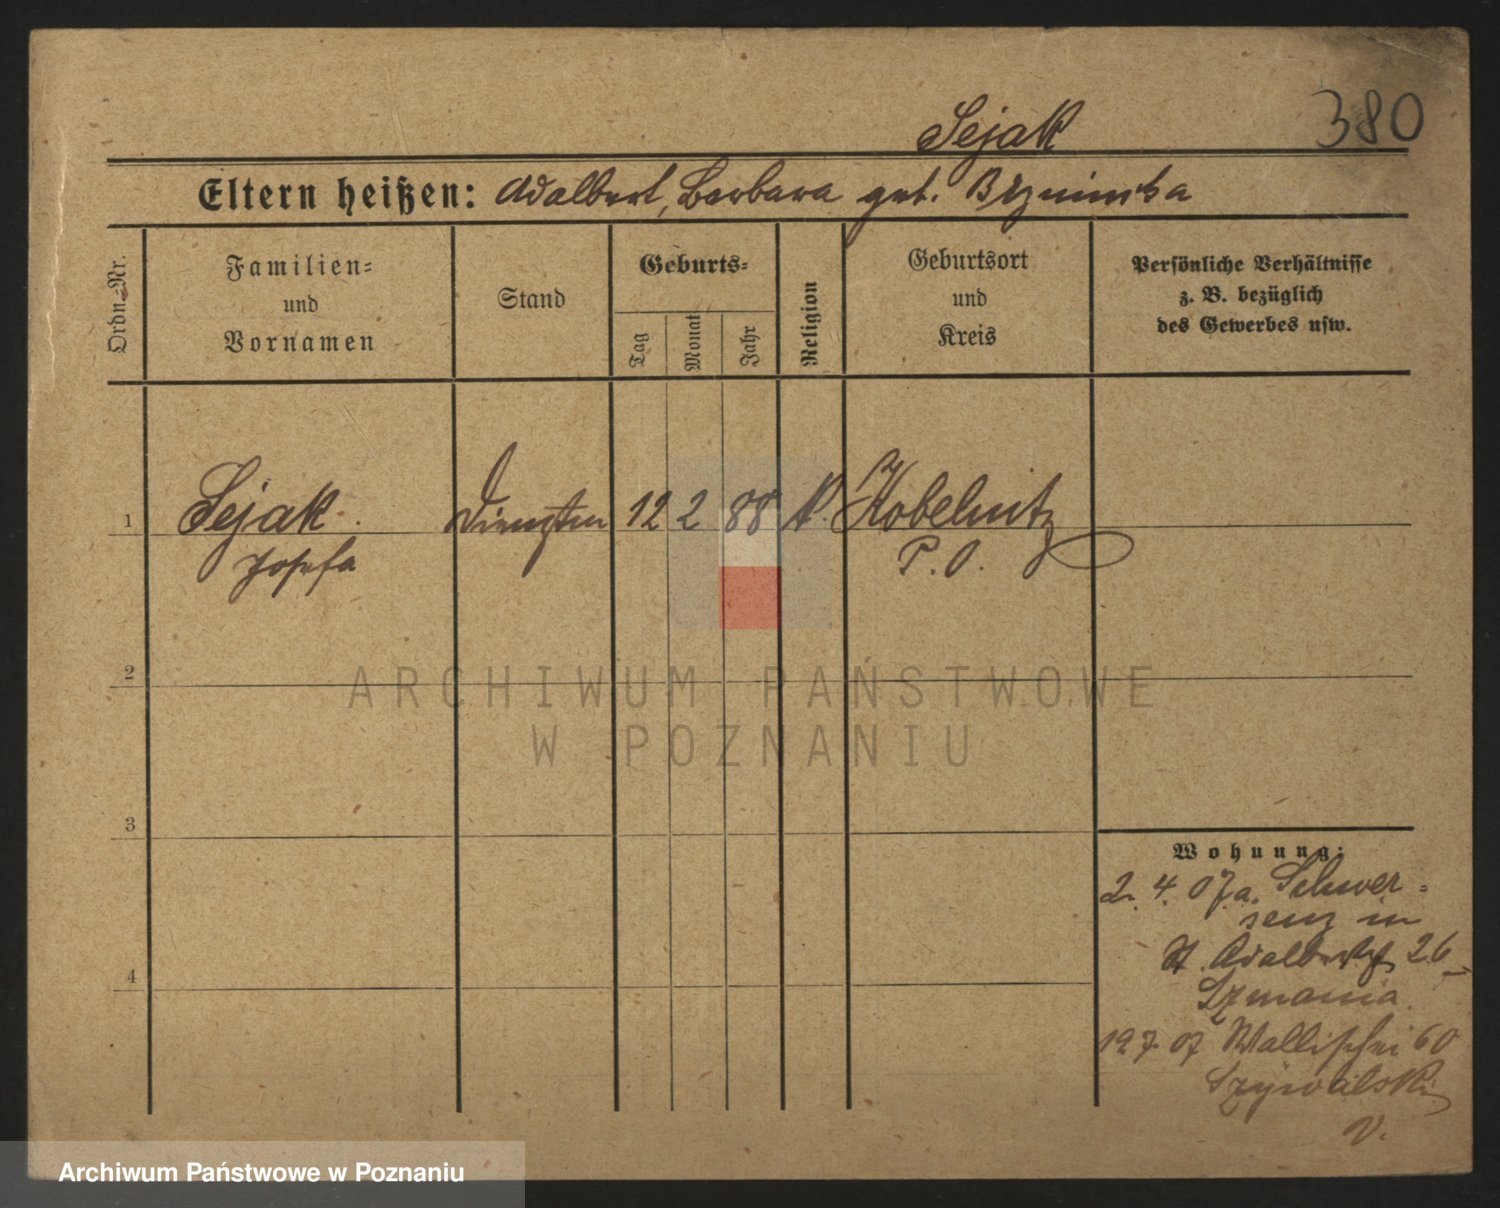 380
Sejak
Eltern heißen: Adalbert, Barbara geb.
Ordn.-Nr.
Familien-
und
Vornamen
Stand
Geburts-
Tag
Monat
Jahr
Religion
Geburtsort
und
Kreis
Persönliche Verhältnisse
z. B. bezüglich
des Gewerbes usw.
1 Sejak Dienstm 12 2 88 k. Kobelnitz
Josefa P. O.
2
3
4
Wohnung:
2. 4. 07 a. Schwer-
senz in
St. Adalbertstr 26
Szmania
19 7 07 Wallischei 60
V.
ARCHIWUM PAŃSTWOWE
W POZNANIU
Archiwum Państwowe w Poznaniu